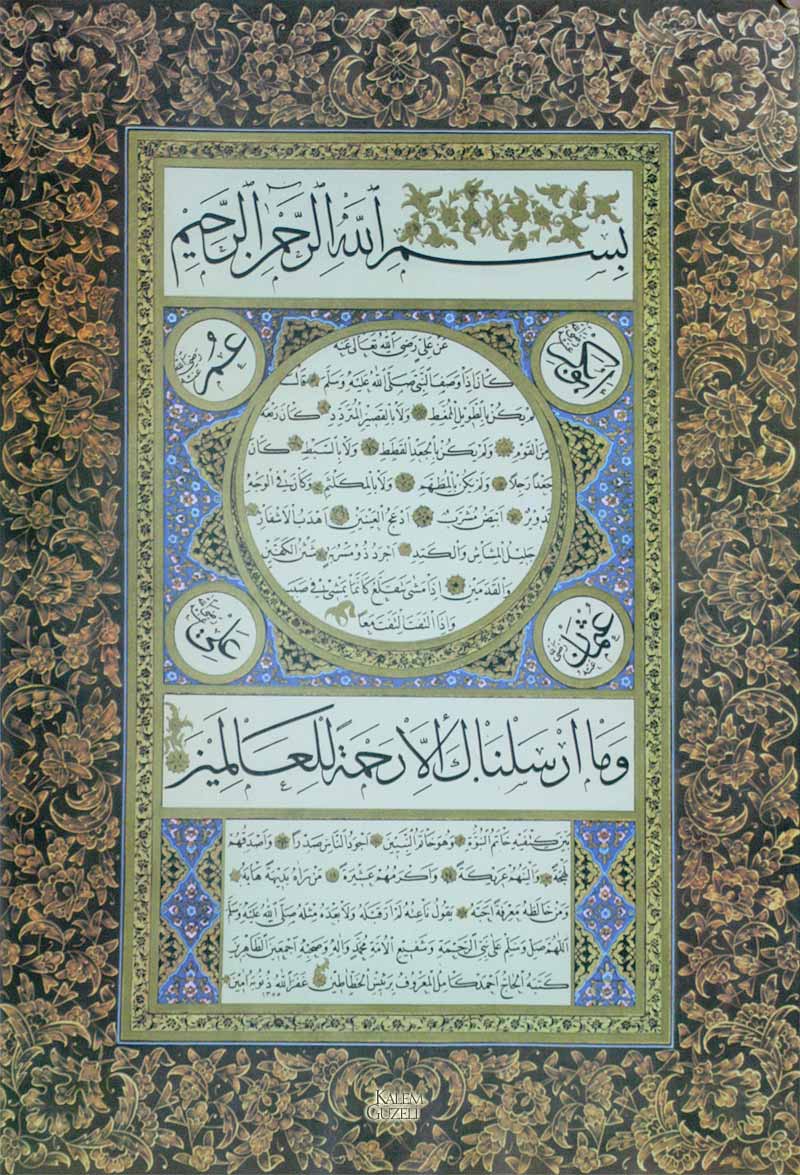 بسم الله الرحمن الرحيم
ابو بكر رضي الله عنه
عمر رضي الله عنه
عن علي رضي الله تعالى عنه
كان اذا وصف النبي صلى الله عليه وسلم قال
لم يكن بالطويل الممغط ولا بالقصير المتردد كان ربعة
من القوم ولم يكن بالجعد القطط ولا بالسبط كان
جعدا رجلا ولم يكن بالمطهم ولا بالمكلثم وكان في الوجه
تدوير ابيض مشرب ادعج العينين اهدب الاشفار
جليل المشاش والكتد اجرد ذو مسربة شثن الكفين
والقدمين اذا مشى تقلع كانما يمشي في صبب
واذا التفت التفت معا
عثمان رضي الله عنه
علي رضي الله عنه
وما ارسلناك الا رحمة للعالمين
بين كتفيه خاتم النبوة وهو خاتم النبيين اجود الناس صدرا واصدقهم
لهجة والينهم عريكة واكرمهم عشيرة من راه بديهة هابه
ومن خالطه معرفة احبه يقول ناعته لم ار قبله ولا بعده مثله صلى الله عليه وسلم
اللهم صل وسلم على نبي الرحمة وشفيع الامة محمد واله وصحبه اجمعين الطاهرين
كتبه الحاج احمد كامل المعروف برئيس الخطاطين غفر الله ذنوبه امين
KALEM
GÜZELİ